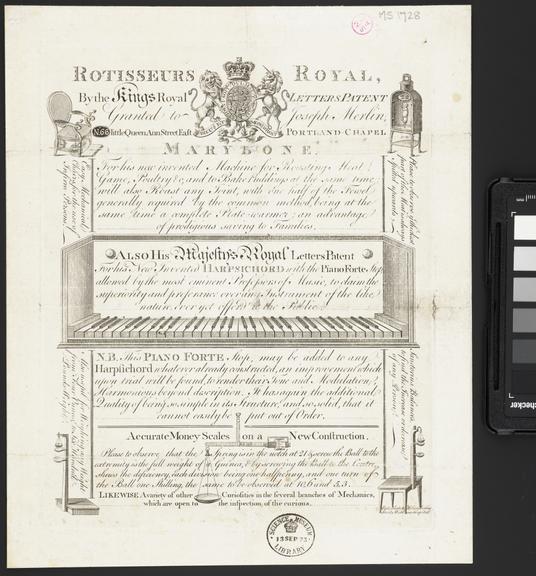 MS 1728
ROTISSEURS ROYAL,
By the Kings Royal LETTERS PATENT
Granted to Joseph Merlin,
N.66 little Queen Ann Street East PORTLAND CHAPEL
MARYBONE.
For his new invented Machine for Roasting Meat,
Game, Poultry &c, and to Bake Puddings at the same time
will also Roast any Joint, with one half of the Fewel
generally required by the common method, being at the
same time a complete Plate-warmer; an advantage
of prodigious saving to Families.
ALSO His Majesty's Royal Letters Patent
For his New Invented HARPSICHORD with the Piano Forte Stop
allowed by the most eminent Professors of Music, to claim the
superiority and preferance over any Instrument of the like
nature. Ever yet offer'd to the Public.
N.B. This PIANO FORTE Stop, may be added to any
Harpsichord whatever already constructed, an improvement which
upon trial will be found, to render their Tone and Modulation,
Harmonious beyond description. It has again the additional
Quality of being so simple in its Structure, and so solid, that it
cannot easily be put out of Order.
Accurate Money Scales on a New Construction.
Please to observe that the Spring is in the notch at 21 & screw the Ball to the
extremity is the full weight of a Guinea, & by screwing the Ball to the Centre,
shews the deficiency, Each division being one halfpenny, and one turn of
the Ball one Shilling, the same to be observed at 10,6 and 5,3.
LIKEWISE A variety of other Curiosities in the several branches of Mechanics,
which are open to the inspection of the curious.
SCIENCE MUSEUM
13 SEP 73
LIBRARY
checker